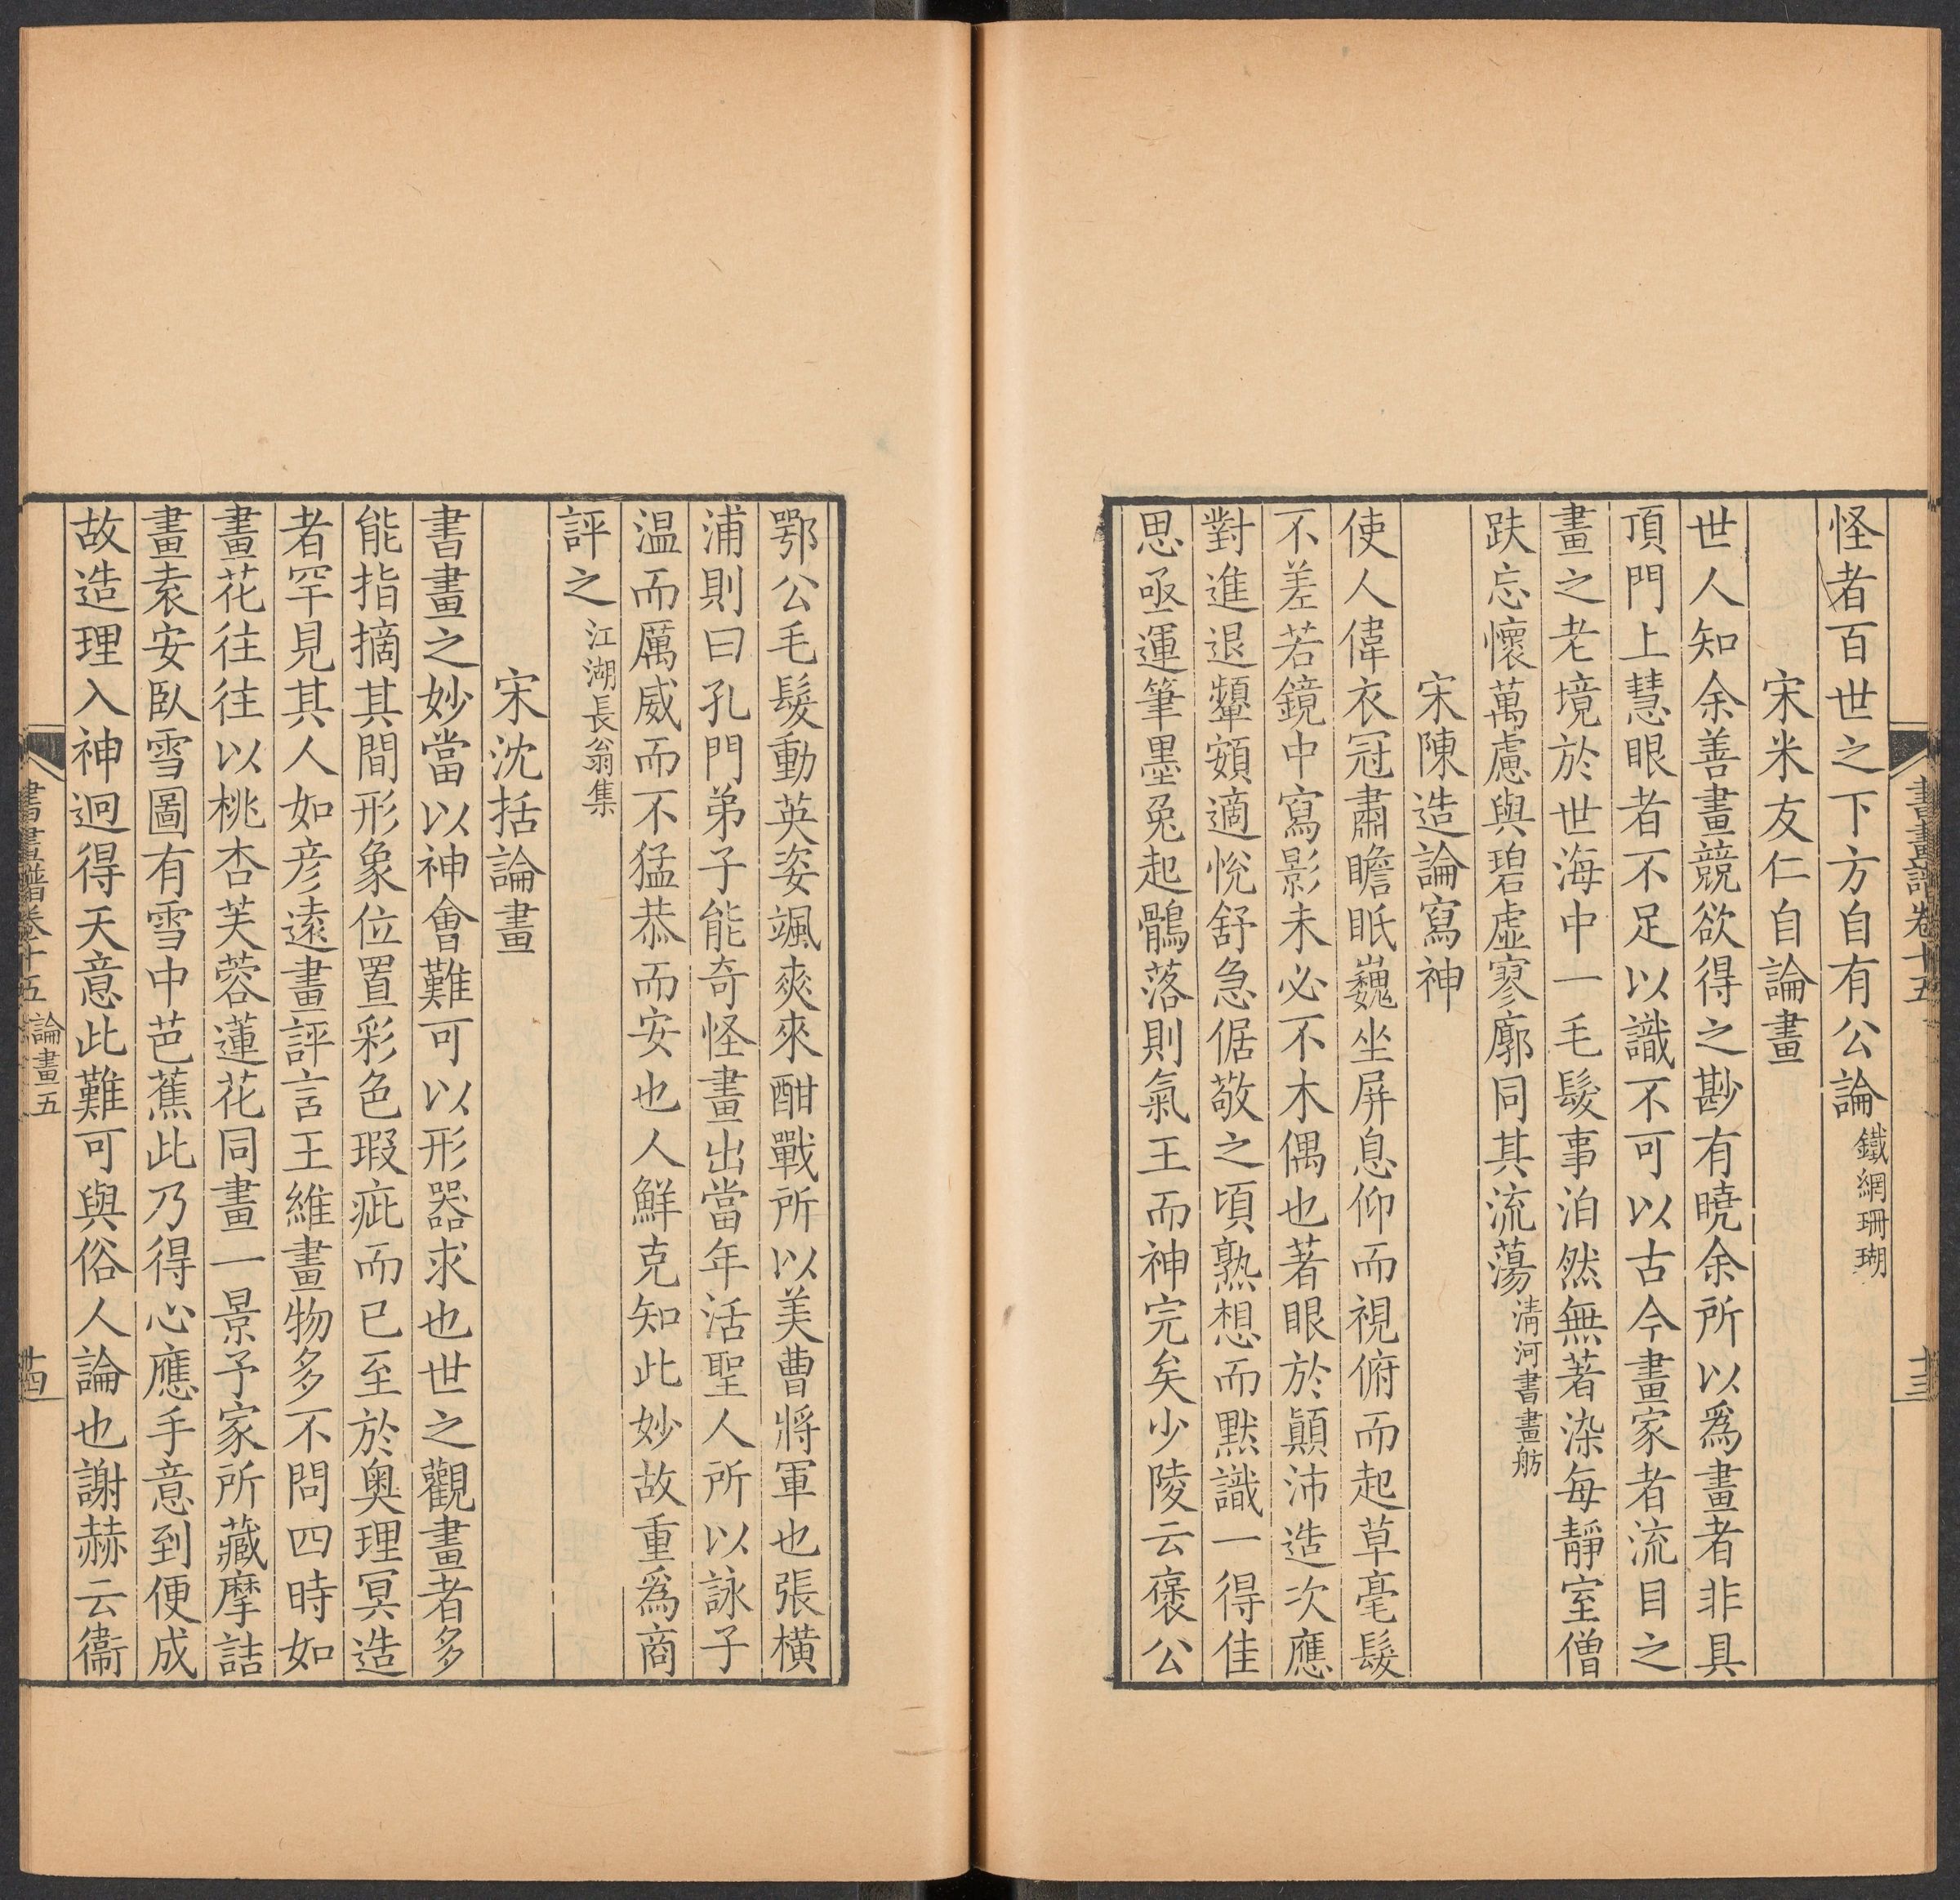 書畫譜卷十五
十三
怪者百世之下方自有公論鐵網珊瑚
宋米友仁自論畫
世人知余善畫競欲得之尠有曉余所以爲畫者非具
頂門上慧眼者不足以識不可以古今畫家者流目之
畫之老境於世海中一毛髮事泊然無著染每靜室僧
趺忘懷萬慮與碧虛寥廓同其流蕩淸河書畫舫
宋陳造論寫神
使人偉衣冠肅瞻眂巍坐屏息仰而視俯而起草毫髮
不差若鏡中寫影未必不木偶也著眼於顚沛造次應
對進退顰頞適悅舒急倨敬之頃熟想而默識一得佳
思亟運筆墨兔起鶻落則氣王而神完矣少陵云褒公
鄂公毛髮動英姿颯爽來酣戰所以美曹將軍也張橫
浦則曰孔門弟子能奇怪畫出當年活聖人所以詠子
温而厲威而不猛恭而安也人鮮克知此妙故重爲商
評之江湖長翁集
宋沈括論畫
書畫之妙當以神會難可以形器求也世之觀畫者多
能指摘其間形象位置彩色瑕疵而已至於奧理冥造
者罕見其人如彦遠畫評言王維畫物多不問四時如
畫花往往以桃杏芙蓉蓮花同畫一景予家所藏摩詰
畫袁安臥雪圖有雪中芭蕉此乃得心應手意到便成
故造理入神迥得天意此難可與俗人論也謝赫云衞
書畫譜卷十五 論畫五
十四